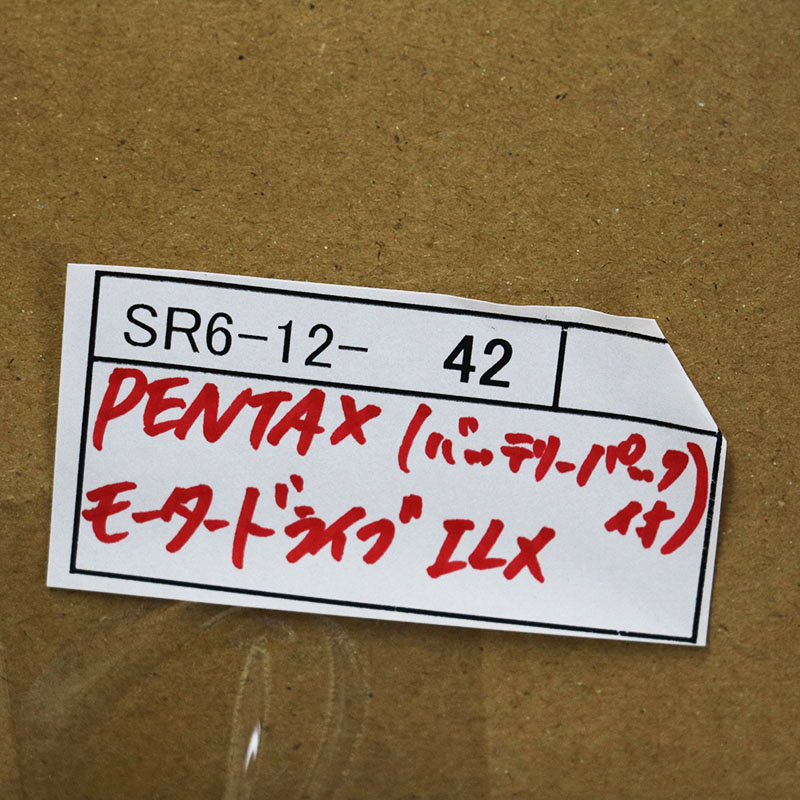 SR6-12- 42
PENTAX (バッテリーパック付)
モータードライブ ILX